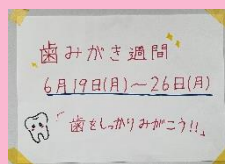 歯みがき週間
6月19日(月)～26日(月)
「歯をしっかりみがこう!!」